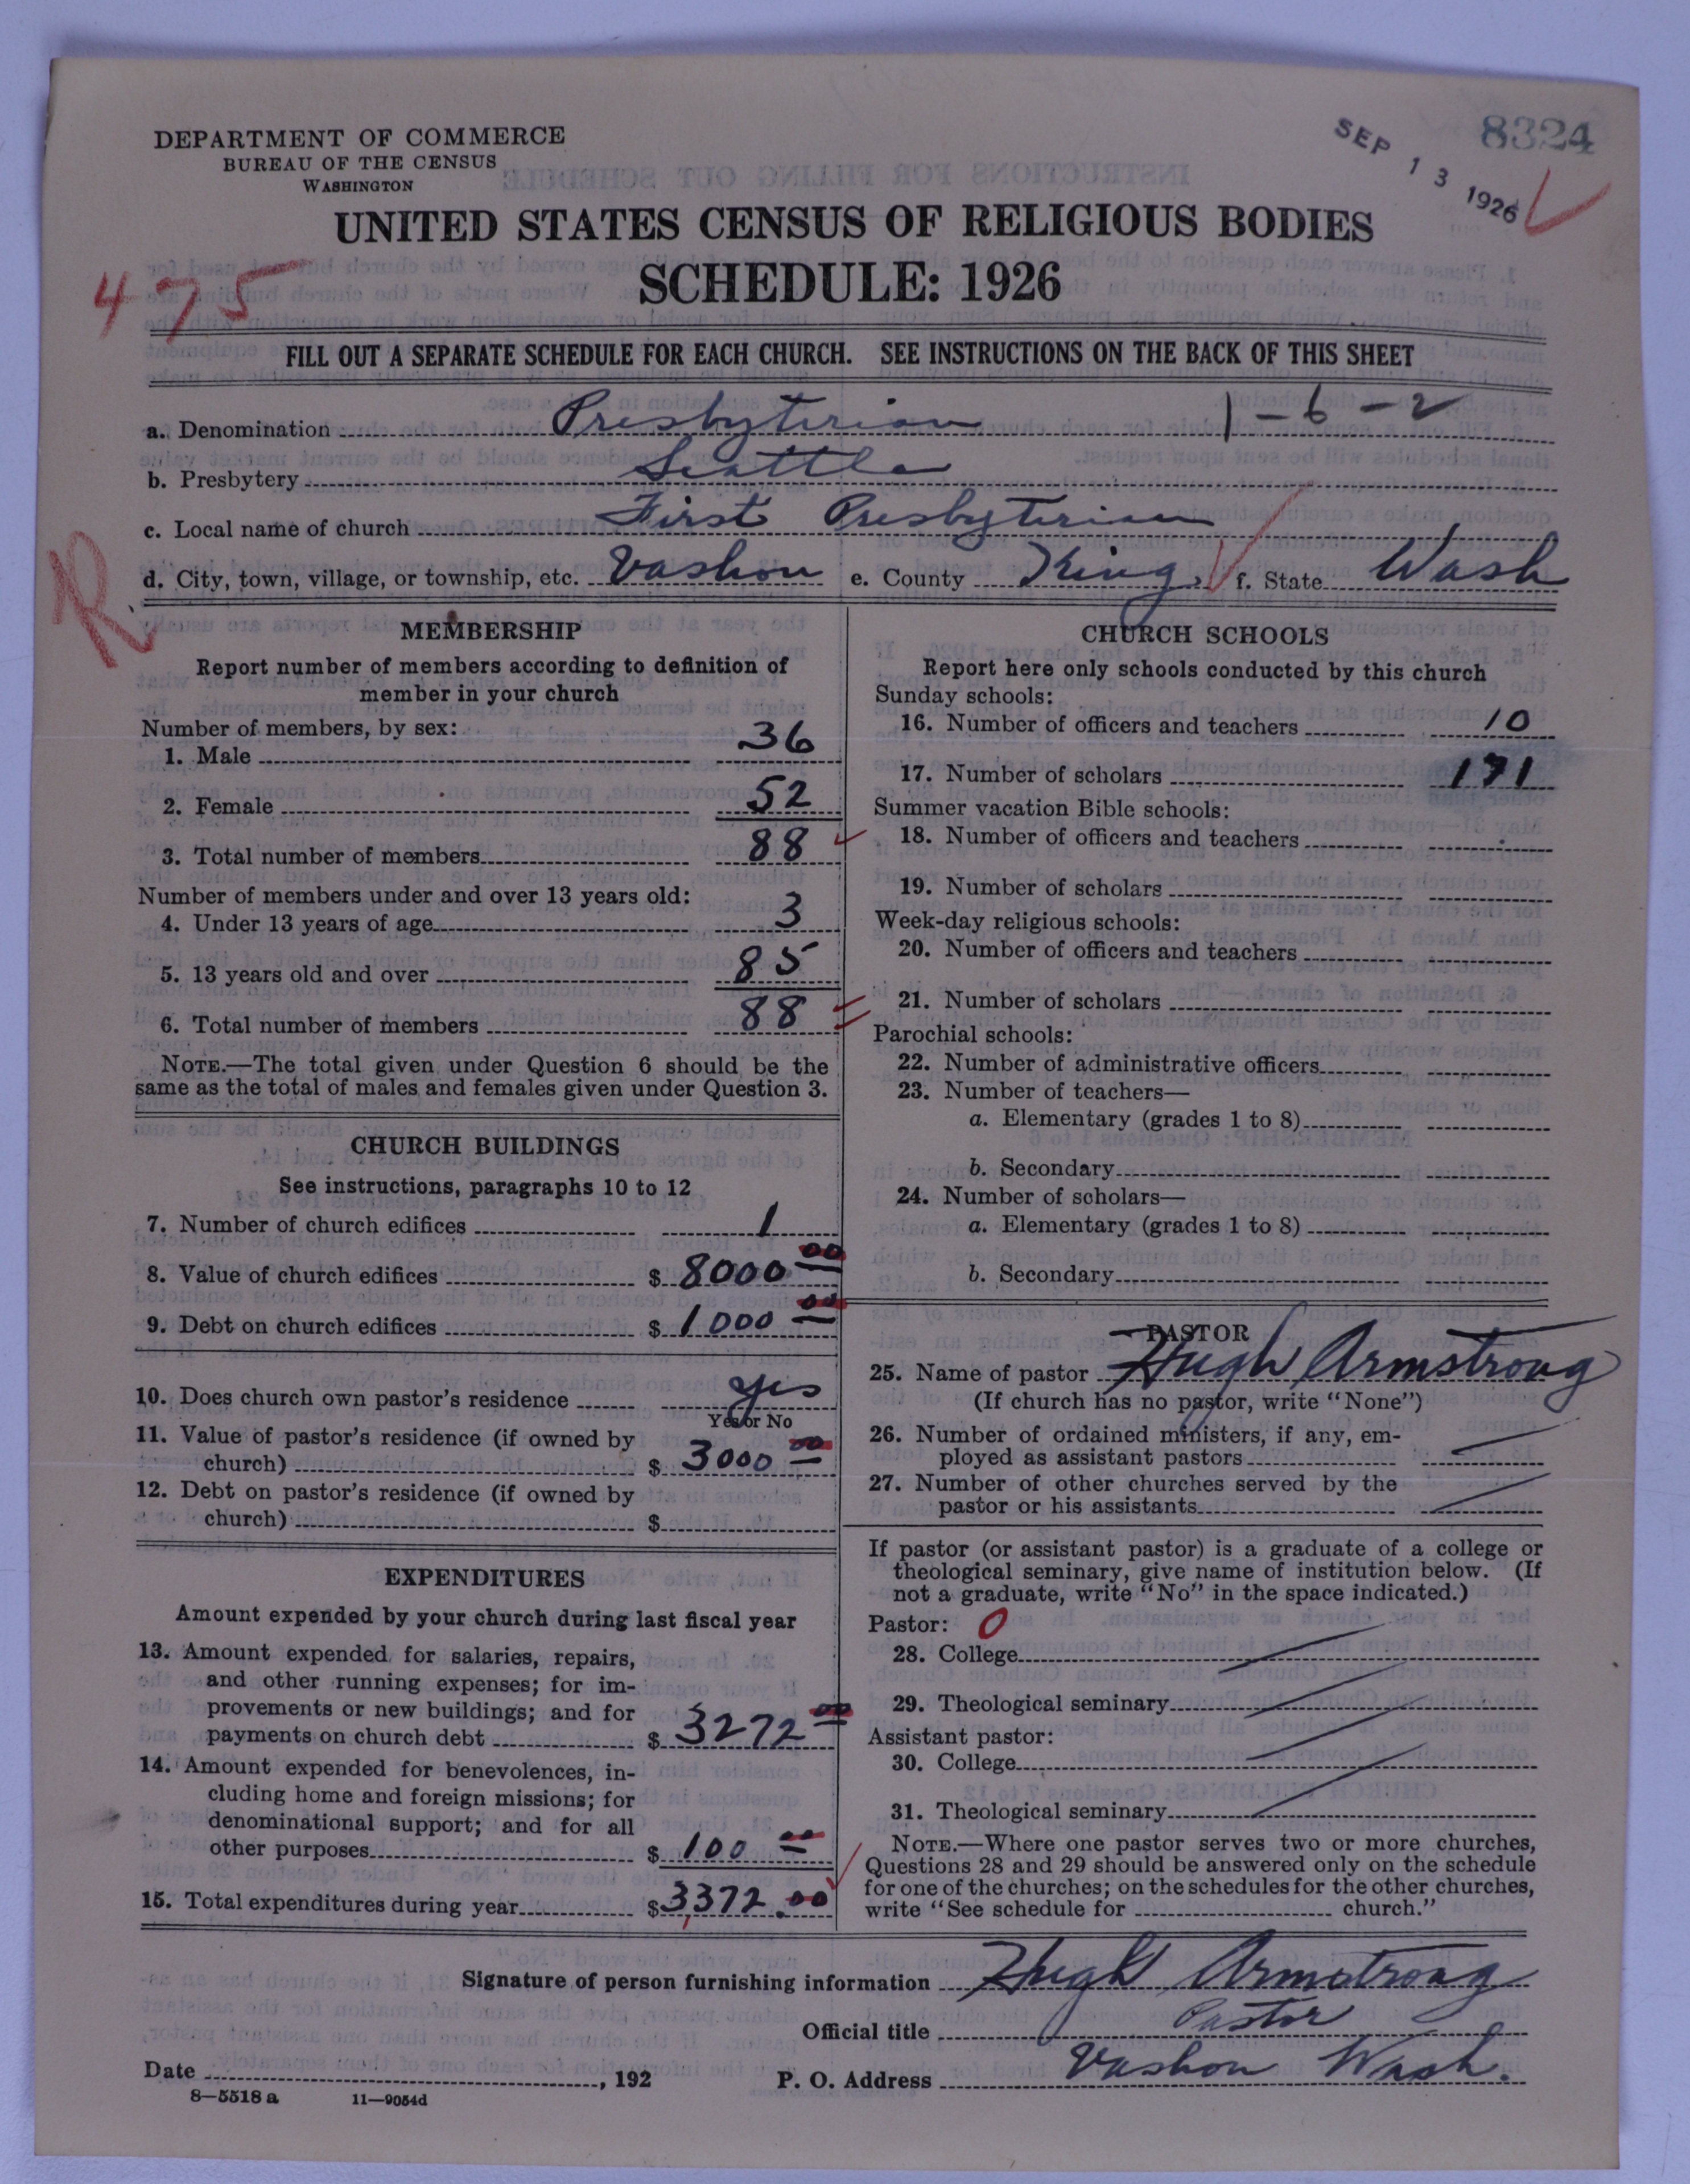 DEPARTMENT OF COMMERCE
BUREAU OF THE CENSUS
WASHINGTON
SEP 13 1926
8324
UNITED STATES CENSUS OF RELIGIOUS BODIES
SCHEDULE: 1926
475
FILL OUT A SEPARATE SCHEDULE FOR EACH CHURCH. SEE INSTRUCTIONS ON THE BACK OF THIS SHEET
a. Denomination Presbyterian 1-6-2
b. Presbytery Seattle
c. Local name of church First Presbyterian
d. City, town, village, or township, etc. Vashon e. County King f. State Wash
R
MEMBERSHIP
Report number of members according to definition of
member in your church
Number of members, by sex:
1. Male 36
2. Female 52
3. Total number of members 88
Number of members under and over 13 years old:
4. Under 13 years of age 3
5. 13 years old and over 85
6. Total number of members 88
NOTE.—The total given under Question 6 should be the
same as the total of males and females given under Question 3.
CHURCH BUILDINGS
See instructions, paragraphs 10 to 12
7. Number of church edifices 1
8. Value of church edifices $ 8000 00
9. Debt on church edifices $ 1000 00
10. Does church own pastor's residence yes
Yes or No
11. Value of pastor's residence (if owned by
church) $ 3000 00
12. Debt on pastor's residence (if owned by
church) $
EXPENDITURES
Amount expended by your church during last fiscal year
13. Amount expended for salaries, repairs,
and other running expenses; for im-
provements or new buildings; and for
payments on church debt $ 3272 00
14. Amount expended for benevolences, in-
cluding home and foreign missions; for
denominational support; and for all
other purposes $ 100 00
15. Total expenditures during year $ 3,372.00
CHURCH SCHOOLS
Report here only schools conducted by this church
Sunday schools:
16. Number of officers and teachers 10
17. Number of scholars 171
Summer vacation Bible schools:
18. Number of officers and teachers
19. Number of scholars
Week-day religious schools:
20. Number of officers and teachers
21. Number of scholars
Parochial schools:
22. Number of administrative officers
23. Number of teachers—
a. Elementary (grades 1 to 8)
b. Secondary
24. Number of scholars—
a. Elementary (grades 1 to 8)
b. Secondary
PASTOR
25. Name of pastor Hugh Armstrong
(If church has no pastor, write "None")
26. Number of ordained ministers, if any, em-
ployed as assistant pastors
27. Number of other churches served by the
pastor or his assistants
If pastor (or assistant pastor) is a graduate of a college or
theological seminary, give name of institution below. (If
not a graduate, write "No" in the space indicated.)
Pastor: 0
28. College
29. Theological seminary
Assistant pastor:
30. College
31. Theological seminary
NOTE.—Where one pastor serves two or more churches,
Questions 28 and 29 should be answered only on the schedule
for one of the churches; on the schedules for the other churches,
write "See schedule for church."
Signature of person furnishing information Hugh Armstrong
Official title Pastor
Date , 192 P. O. Address Vashon Wash.
8—5518 a 11—9054d